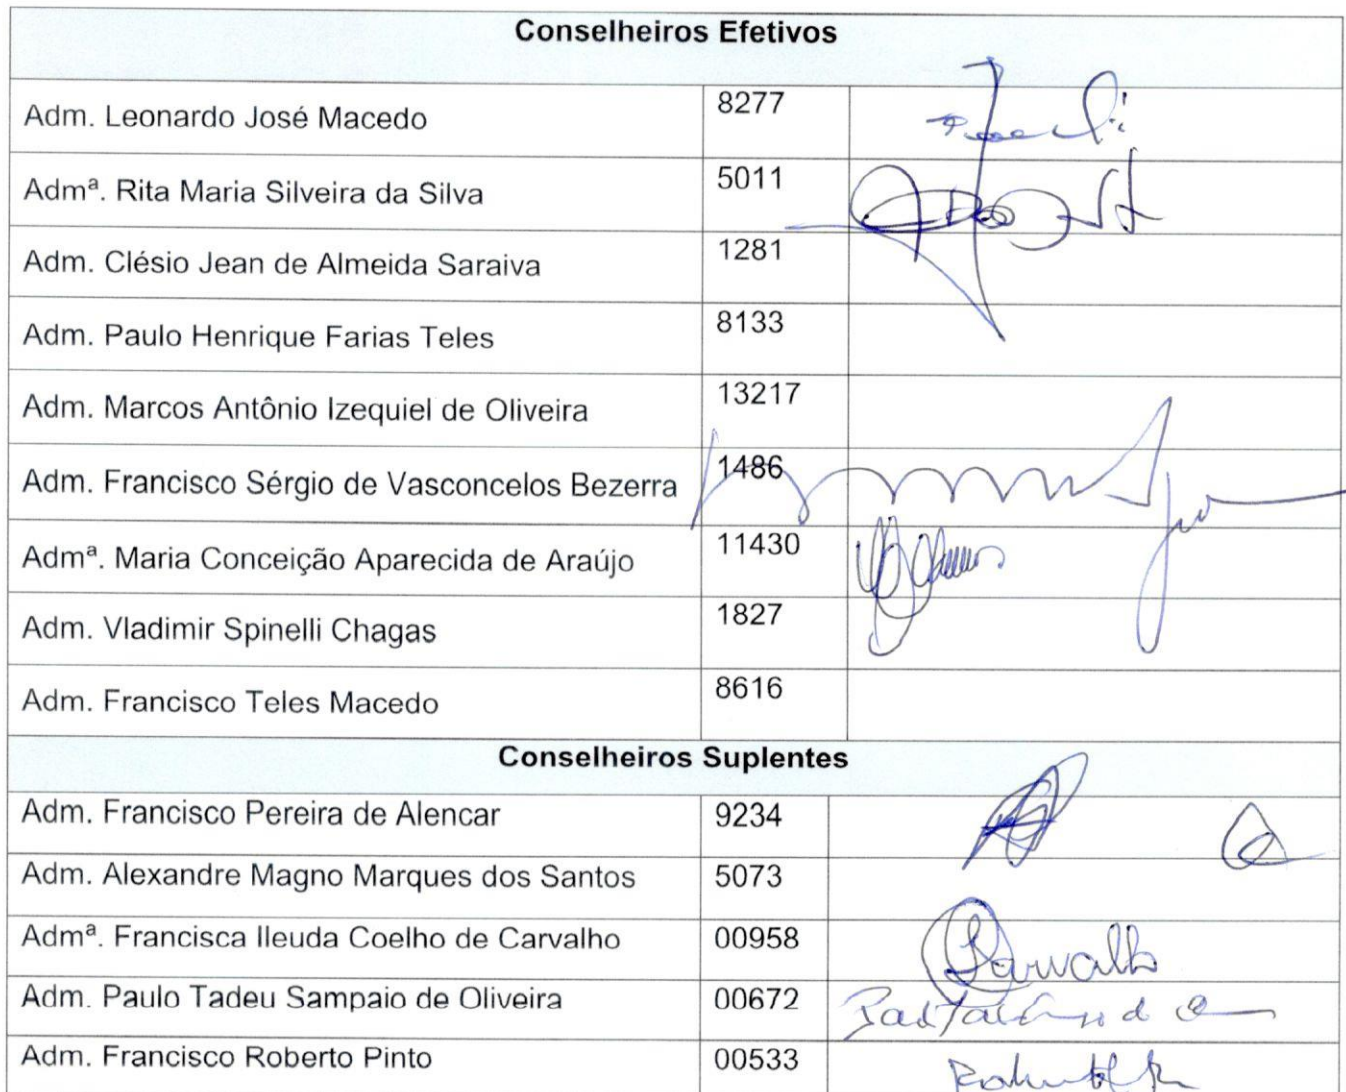 Conselheiros Efetivos
Adm. Leonardo José Macedo 8277
Admª. Rita Maria Silveira da Silva 5011
Adm. Clésio Jean de Almeida Saraiva 1281
Adm. Paulo Henrique Farias Teles 8133
Adm. Marcos Antônio Izequiel de Oliveira 13217
Adm. Francisco Sérgio de Vasconcelos Bezerra 1486
Admª. Maria Conceição Aparecida de Araújo 11430
Adm. Vladimir Spinelli Chagas 1827
Adm. Francisco Teles Macedo 8616
Conselheiros Suplentes
Adm. Francisco Pereira de Alencar 9234
Adm. Alexandre Magno Marques dos Santos 5073
Admª. Francisca Ileuda Coelho de Carvalho 00958 Carvalho
Adm. Paulo Tadeu Sampaio de Oliveira 00672
Adm. Francisco Roberto Pinto 00533